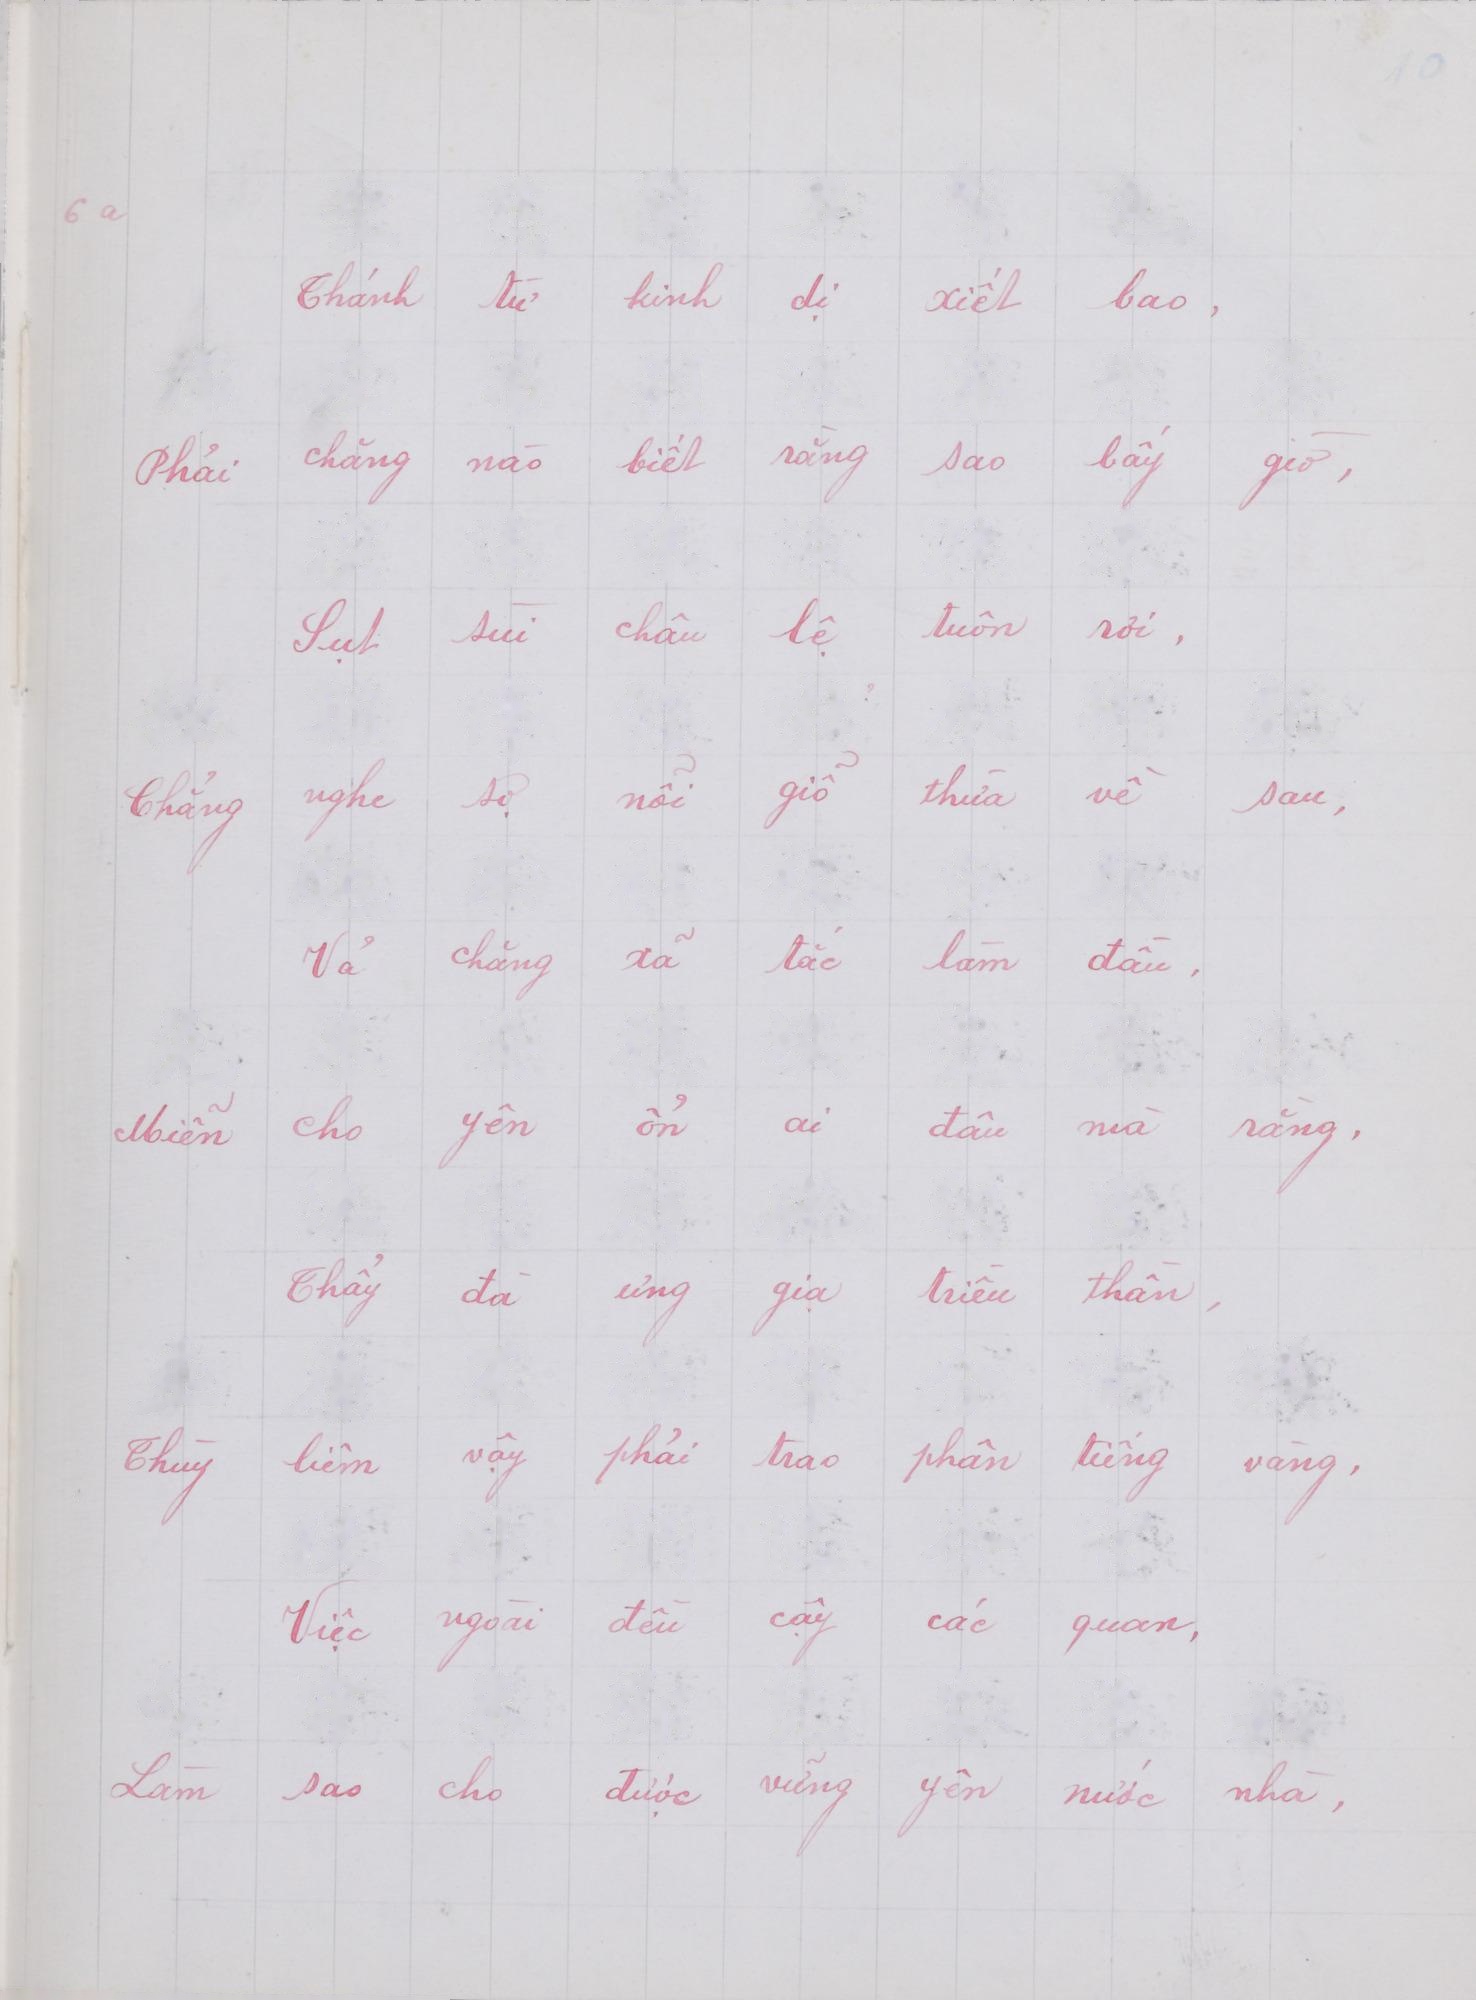 10
6 a
Thánh từ kinh dị xiết bao,
Phải chăng nào biết rằng sao bấy giờ,
Sụt sùi châu lệ tuôn rơi,
Chẳng nghe sợ nỗi giỗ thừa về sau,
Vả chăng xã tắc làm đầu,
Miễn cho yên ổn ai đâu mà rằng,
Thẩy đà ưng gia triều thần,
Thùy liêm vậy phải trao phân tiếng vàng,
Việc ngoài đều cậy các quan,
Làm sao cho được vững yên nước nhà,